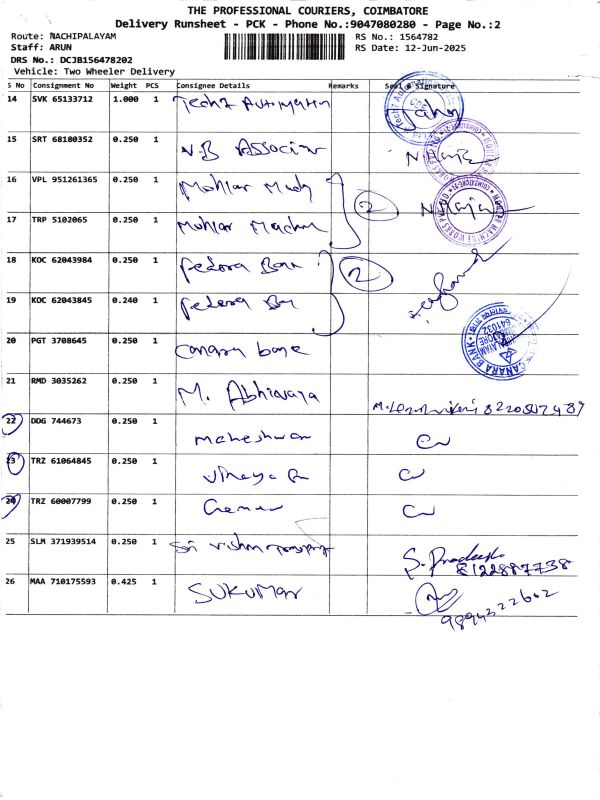 THE PROFESSIONAL COURIERS, COIMBATORE
Delivery Runsheet - PCK - Phone No.:9047080280 - Page No.:2
Route: NACHIPALAYAM RS No.: 1564782
Staff: ARUN RS Date: 12-Jun-2025
DRS No.: DCJB156478202
Vehicle: Two Wheeler Delivery
S No Consignment No Weight PCS Consignee Details Remarks Seal & Signature
14 SVK 65133712 1.000 1 Tech7 Automation
15 SRT 68180352 0.250 1 N.B Associa
16 VPL 951261365 0.250 1 2
17 TRP 5102065 0.250 1
18 KOC 62043984 0.250 1 Fedora Ban 2
19 KOC 62043845 0.240 1 Fedora
20 PGT 3708645 0.250 1 Canara CANARA BANK 641032
21 RMD 3035262 0.250 1 M. Abhinaya
22 DDG 744673 0.250 1 Maheshwar
23 TRZ 61064845 0.250 1
24 TRZ 60007799 0.250 1
25 SLM 371939514 0.250 1 Sri S. Pradeep
8122887738
26 MAA 710175593 0.425 1 SUKUMAR
9894222602